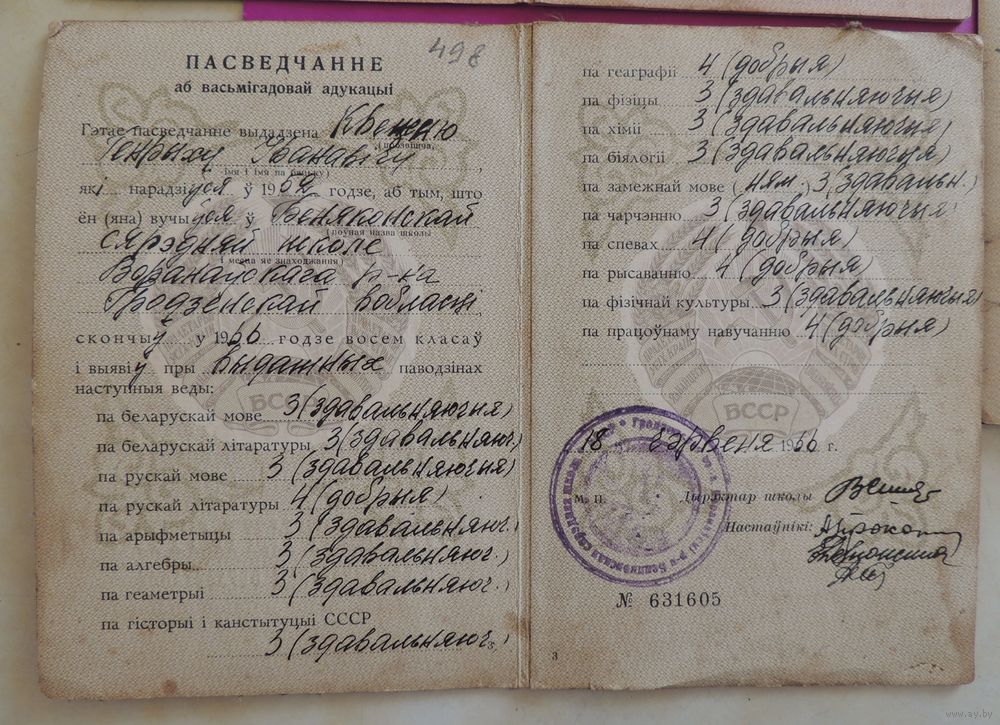 498
ПАСВЕДЧАННЕ
аб васьмігадовай адукацыі
Гэтае пасведчанне выдадзена
(прозвішча,
Генрыху Іванавічу,
імя і імя па бацьку)
які нарадзіўся ў 19 годзе, аб тым, што
ён (яна) вучыўся ў Беняконскай
(поўная назва школы
сярэдняй школе
і месца яе знаходжання)
Воранаўскага р-на
Гродзенскай вобласці
скончыў у 1966 годзе восем класаў
і выявіў пры выдатных паводзінах
наступныя веды:
па беларускай мове 3 (здавальняючыя)
па беларускай літаратуры 3 (здавальняюч.)
па рускай мове 3 (здавальняючыя)
па рускай літаратуры 4 (добрыя)
па арыфметыцы 3 (здавальняюч.)
па алгебры 3 (здавальняюч.)
па геаметрыі 3 (здавальняюч.)
па гісторыі і канстытуцыі СССР
3 (здавальняюч.)
БССР
па геаграфіі 4 (добрыя)
па фізіцы 3 (здавальняючыя)
па хіміі 3 (здавальняючыя)
па біялогіі 3 (здавальняючыя)
па замежнай мове (ням.) 3 (здавальн.)
па чарчэнню 3 (здавальняючыя)
па спевах 4 (добрыя)
па рысаванню 4 (добрыя)
па фізічнай культуры 3 (здавальняючыя)
па працоўнаму навучанню 4 (добрыя)
БССР
18 чэрвеня 1966 г.
М. П. Дырэктар школы
Настаўнікі:
№ 631605
3
www.ay.by